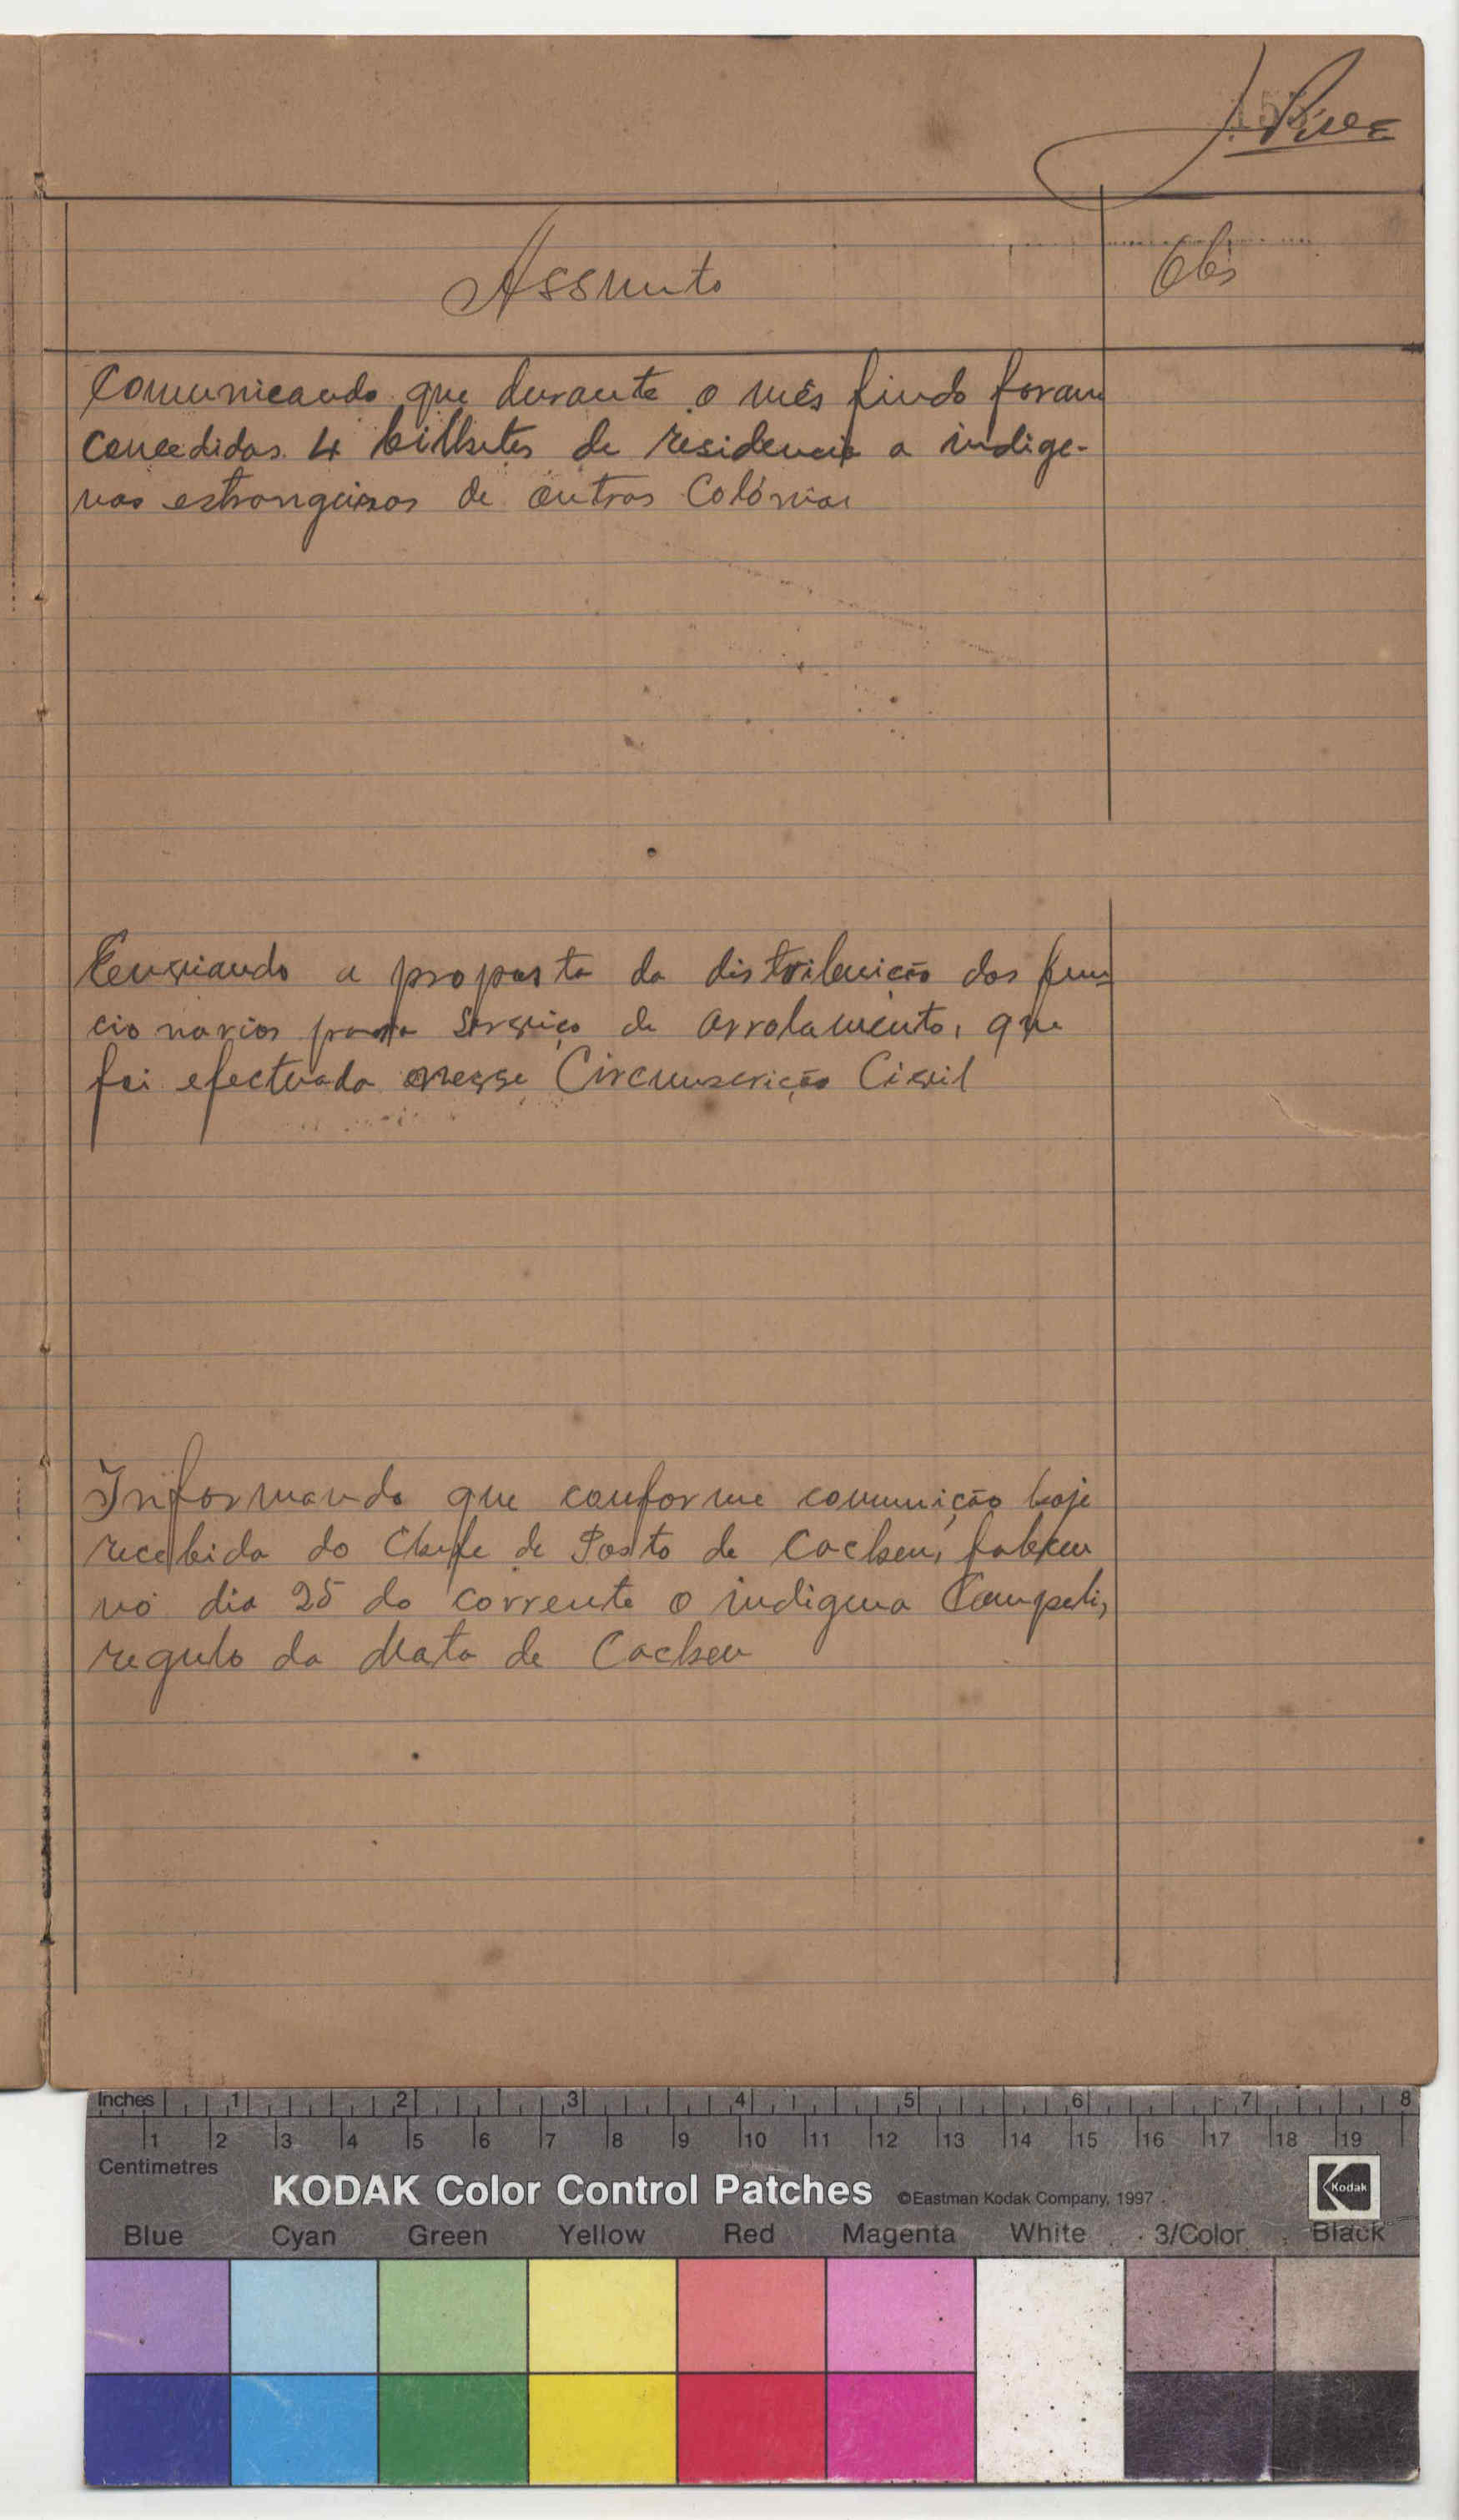 Assunto
Obs
Comunicando que durante o mês findo foram
concedidas 4 bilhetes de residencia a indige-
nas estrangeiros de outras Colónias
Enviando a proposta da distribuição dos fun-
cionarios para serviço de arrolamento, que
foi efectuada nesse Circunscrição Civil
Informando que conforme comunição hoje
recebida do Chefe de Posto de Cacheu, faleceu
no dia 25 do corrente o indigena
regulo da Mata de Cacheu
Inches 1 2 3 4 5 6 7 8
1 2 3 4 5 6 7 8 9 10 11 12 13 14 15 16 17 18 19
Centimetres
KODAK Color Control Patches ©Eastman Kodak Company, 1997 Kodak
Blue Cyan Green Yellow Red Magenta White 3/Color Black